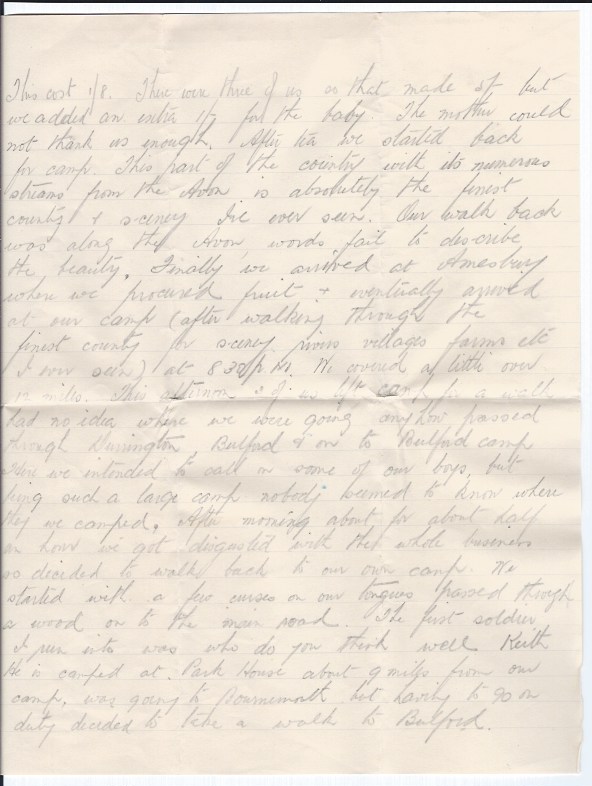 This cost 1/8. There were three of us so that made 5/- but
we added an extra 1/7 for the baby. The mother could
not thank us enough. After tea we started back
for camp. This part of the country with its numerous
streams from the Avon is absolutely the finest
county & scenery I've ever seen. Our walk back
was along the Avon, words fail to describe
the beauty. Finally we arrived at Amesbury
where we procured fruit & eventually arrived
at our camp (after walking through the
finest county for scenery rivers villages farms etc
I ever seen) at 8.30 p.m. We covered a little over
12 miles. This afternoon 3 of us left camp for a walk
had no idea where we were going anyhow passed
through Durrington, Bulford & on to Bulford camp
Here we intended to call on some of our boys, but
being such a large camp nobody seemed to know where
they we camped. After morning about for about half
an hour we got disgusted with the whole business
so decided to walk back to our own camp. We
started with a few curses on our tongues passed through
a wood on to the main road. The first soldier
I run into was who do you think well Keith
He is camped at Park House about 9 miles from our
camp, was going to Bournemouth but having to go on
duty decided to take a walk to Bulford.